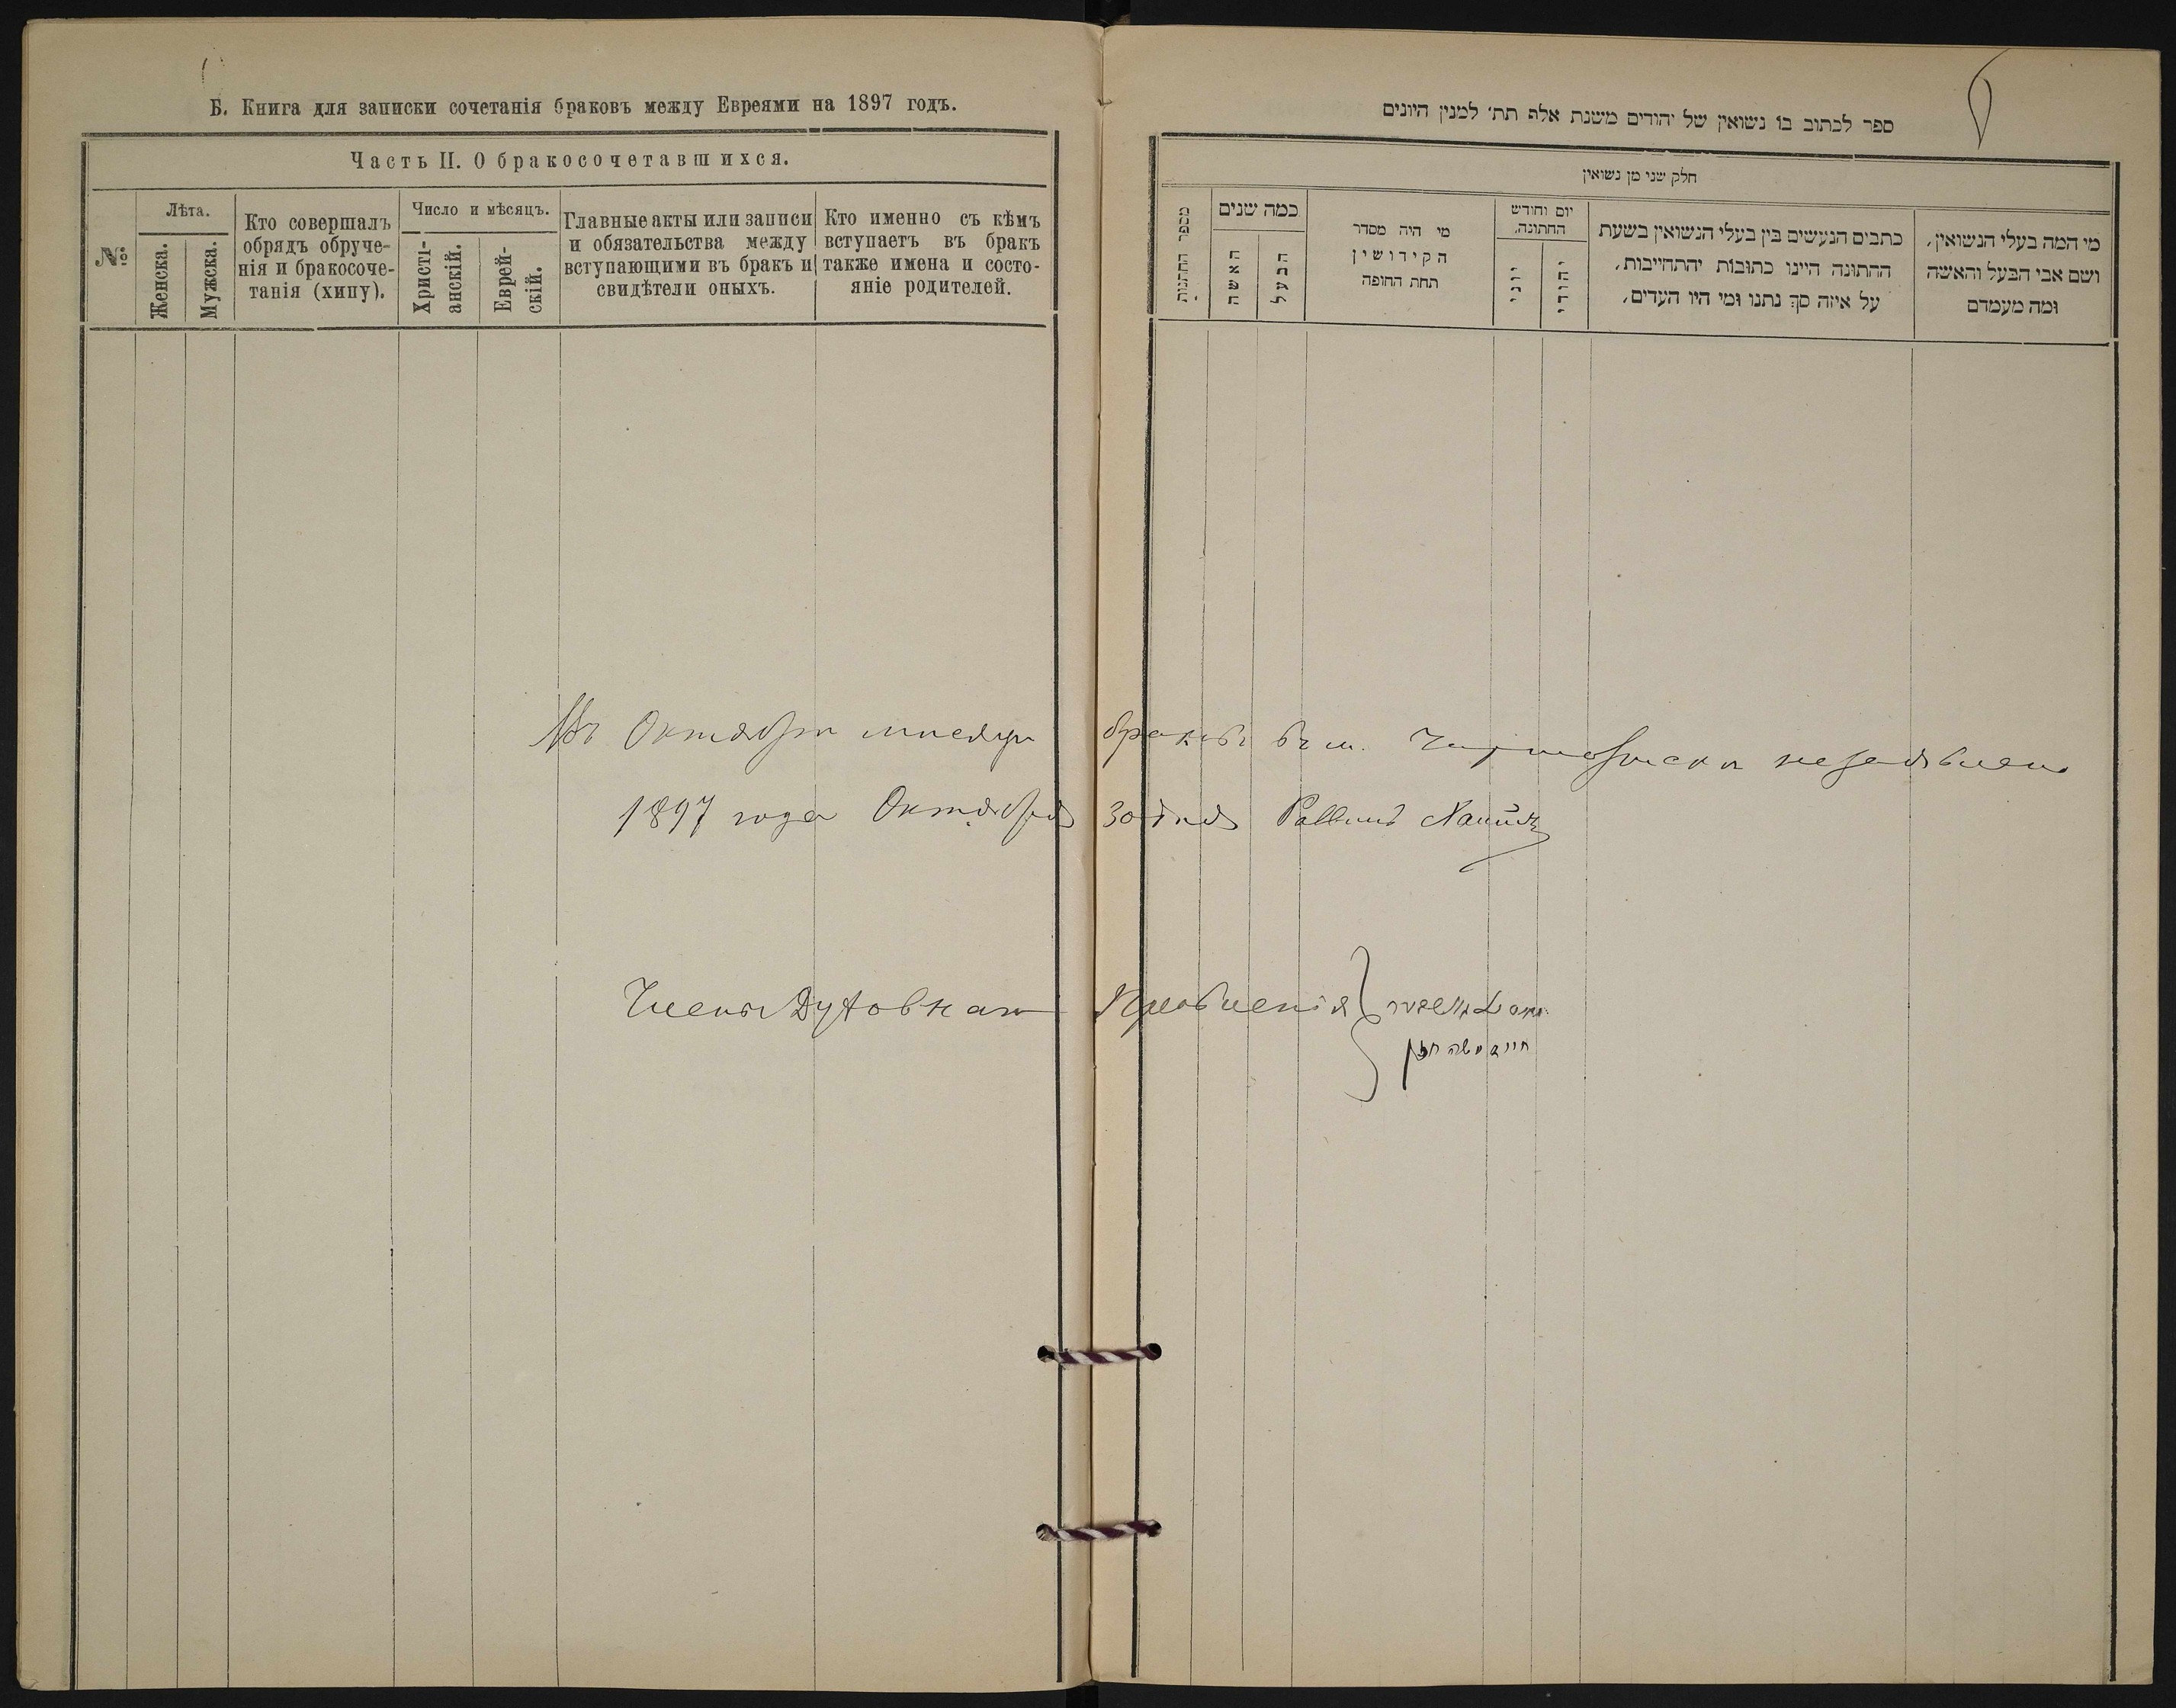 Б. Книга для записки сочетанія браковъ между Евреями на 1897 годъ.
Часть II. О бракосочетавшихся.
№
Лѣта.
Женска.
Мужска.
Кто совершалъ
обрядъ обруче-
нія и бракосоче-
танія (хипу).
Число и мѣсяцъ.
Христі-
анскій.
Еврей-
скій.
Главные акты или записи
и обязательства между
вступающими въ бракъ и
свидѣтели оныхъ.
Кто именно съ кѣмъ
вступаетъ въ бракъ
также имена и состо-
яніе родителей.
ספר לכתוב בו נשואין של יהודים משנת אלפ תת׳ למנין היונים
חלק שני מן נשואין
מספר החתנות
כמה שנים
האשה
הבעל
מי היה מסדר
הקידושין
תחת החופה
יום וחודש
החתונה,
יוני
יהודי
כתבים הנעשים בין בעלי הנשואין בשעת
החתונה היינו כתובות יהתחייבות,
על איזה סך נתנו ומי היו העדים,
מי המה בעלי הנשואין,
ושם אבי הבעל והאשה
ומה מעמדם
Въ Октябрѣ мѣсяцѣ браковъ въ м. незаявлено
1897 года Октября 30 дня Раввинъ
Члены Духовнаго Правленія
חיים משה חזן